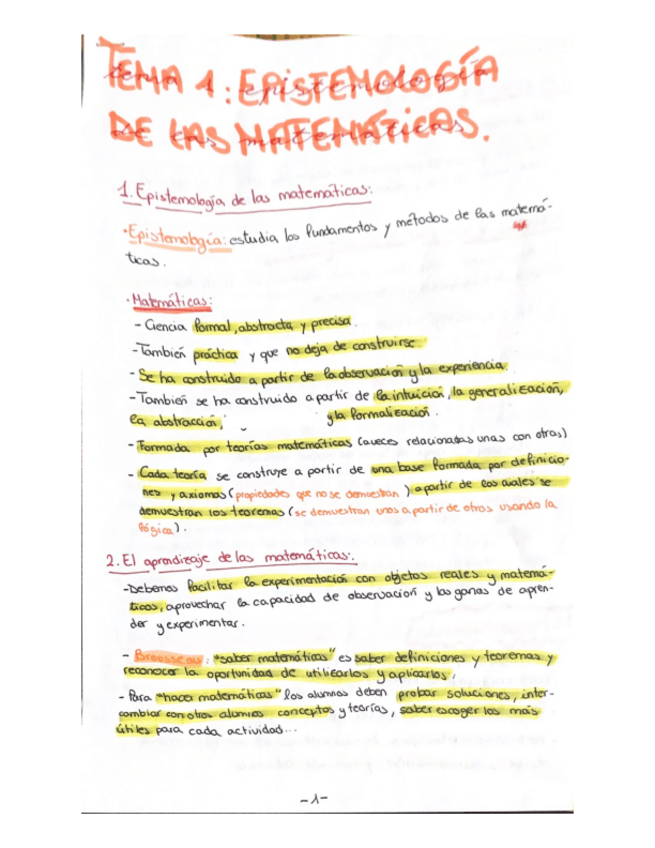 TEMA 1: EPISTEMOLOGÍA
DE LAS MATEMÁTICAS.
1. Epistemología de las matemáticas:
·Epistemología: estudia los fundamentos y métodos de las matemá-
ticas.
·Matemáticas:
- Ciencia formal, abstracta y precisa.
- También práctica y que no deja de construirse.
- Se ha construido a partir de la observación y la experiencia.
- También se ha construido a partir de la intuición, la generalización,
la abstracción, y la formalización.
- Formada por teorías matemáticas (aveces relacionadas unas con otras)
- Cada teoría se construye a partir de una base formada por definicio-
nes y axiomas (propiedades que no se demuestran) a partir de los cuales se
demuestran los teoremas (se demuestran unos a partir de otros usando la
lógica).
2. El aprendizaje de las matemáticas:
- Debemos facilitar la experimentación con objetos reales y matemá-
ticos, aprovechar la capacidad de observación y las ganas de apren-
der y experimentar.
- Brousseau: "saber matemáticas" es saber definiciones y teoremas y
reconocer la oportunidad de utilizarlos y aplicarlos.
- Para "hacer matemáticas" los alumnos deben probar soluciones, inter-
cambiar con otros alumnos conceptos y teorías, saber escoger los más
útiles para cada actividad...
-1-